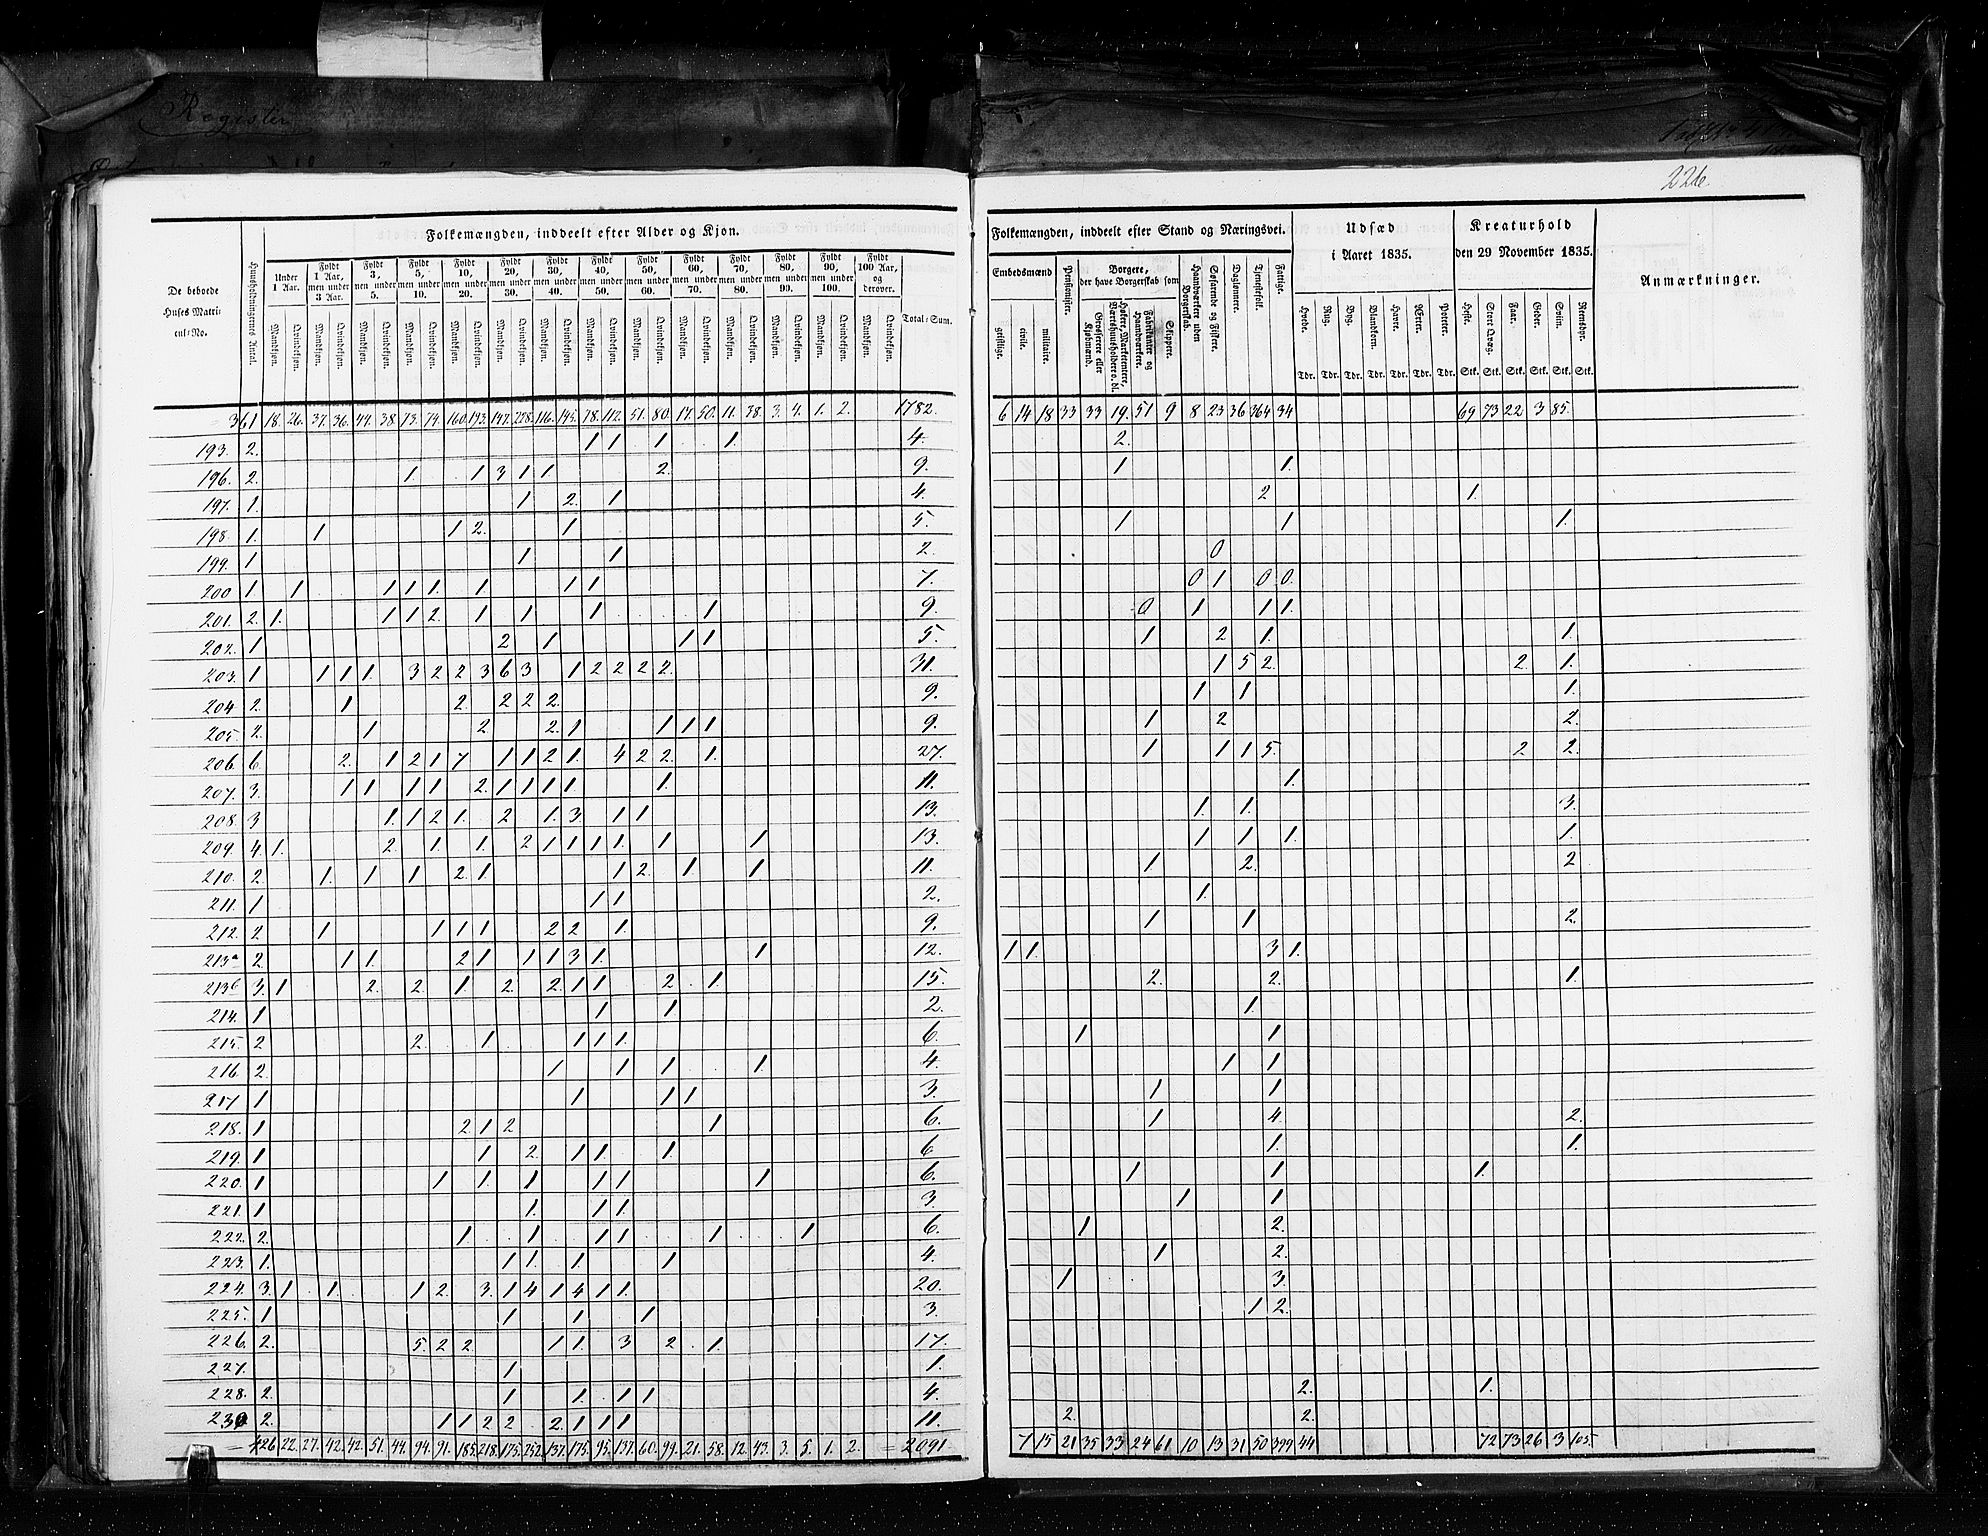 Register
226
Folkemængden, inddeelt efter Alder og Kjøn.
De beboede Huses Matricul-No.
Huusholdningernes Antal.
Under 1 Aar.
Fyldt 1 Aar, men under 3 Aar.
Fyldt 3, men under 5.
Fyldt 5, men under 10.
Fyldt 10, men under 20.
Fyldt 20, men under 30.
Fyldt 30, men under 40.
Fyldt 40, men under 50.
Fyldt 50, men under 60.
Fyldt 60, men under 70.
Fyldt 70, men under 80.
Fyldt 80, men under 90.
Fyldt 90, men under 100.
Fyldt 100 Aar, og derover.
Mandkjøn. Qvindekjøn.
Total-Sum.
361 18. 26. 37. 36. 44. 38. 73. 74. 160. 193. 147. 228. 116. 145. 78. 112. 51. 80. 17. 50. 11. 38. 3. 4. 1. 2. 1782.
193. 2. 1 1 1 1. 4.
196. 2. 1 1 3 1 1. 2. 9.
197. 1. 1 2. 1 4.
198. 1. 1 1 2. 1 5.
199. 1 1 1 2.
200 1. 1 1 1 1. 1 1 1 7.
201. 2. 1. 1 1 2. 1 1 1 1 9.
202. 1 2 1 1 1 5.
203. 1 1 1 1. 3 2 2 3 6 3 1 2 2 2 2. 31.
204 2. 1 2 2 2 2. 9.
205. 2. 1 2. 2. 1 1 1 1 9.
206. 6. 2. 1 2 1 7 1 1 2 1. 4 2 2. 1. 27.
207. 3. 1 1 1 1 2. 1 1 1 1. 1. 11.
208. 3 1. 1 2 1. 2 1. 3 1 1 13.
209. 4. 1. 2. 1. 1. 2 1 1 1 1. 1 1 13.
210. 2. 1. 1 1 2 1 1 2. 1 1 11.
211. 1 1 1 2.
212. 2 1 1 1 1 2 2. 1. 9.
213a 2. 1 1. 2 1 1 1 3 1. 1 12.
213b 3. 1 2. 2. 1. 2. 2. 1 1 2 1. 15.
214. 1 1 1 2.
215. 2 2. 1 1 1 1. 6.
216. 2. 1 1 1 1 4.
217 1 1 1 1 3.
218. 1 2 1 2 1 6.
219. 1 1 2. 1 1. 1 6
220. 1 1 1. 1 1 1. 1 6.
221. 1 1. 1 1. 3.
222. 2. 1 1 1 1 1 1 6.
223. 1. 1 1. 1 1 4.
224. 3. 1 1. 1 2. 3. 1 4 1 4 1 1. 20.
225. 1 1 1 1 3.
226. 2. 5. 2 2 1 1. 3 2 1. 17.
227. 1 1.
228. 2. 1 1. 1 1 4.
230 2. 1 1 2 2 2. 1 1 1 11.
426 22. 27. 42. 42. 51. 44. 94. 91. 185. 218. 175. 252. 137. 175. 95. 137. 60. 99. 21. 58. 12. 43. 3. 5. 1. 2. = 2091
Folkemængden, inddeelt efter Stand og Næringsvei.
Embedsmænd
geistlige. civile. militaire.
Pensionister.
Borgere, der have Borgerskab som
Grosserere eller Kjøbmænd.
Høkere, Marketentere, Værtshuusholdere o. dl.
Fabrikanter og Haandværkere.
Skippere.
Haandværkere uden Borgerskab.
Søfarende og Fiskere.
Daglønnere.
Tjenestefolk.
Fattige.
Udsæd i Aaret 1835.
Hvede. Rug. Byg. Blandkorn. Havre. Erter. Poteter.
Tdr. Tdr. Tdr. Tdr. Tdr. Tdr. Tdr.
Kreaturhold den 29 November 1835.
Heste. Stort Qvæg. Faar. Geder. Sviin. Rensdyr.
Stk. Stk. Stk. Stk. Stk. Stk.
Anmærkninger.
6 14 18 33 33 19. 51 9 8 23 36 364 34 69 73 22 3 85.
2.
1 1.
2 1.
1 1 1.
0
0 1 0 0.
0 1 1 1.
1 2 1. 1.
1 5 2. 2. 1.
1 1 1.
1 2 2.
1 1 1 5. 2 2.
1.
1. 1. 3.
1 1 1. 1.
1 2. 2
1.
1 1 2.
1 1. 3 1.
2. 2. 1.
1.
1 1
1 1
1 1
1 4. 2.
1. 1.
1 1 1.
1 1
1 2.
1 2.
1 3.
1 2.
2. 1.
2. 2.
7 15 21 35 33 24 61 10 13 31 50 399 44 72 73 26 3 105.